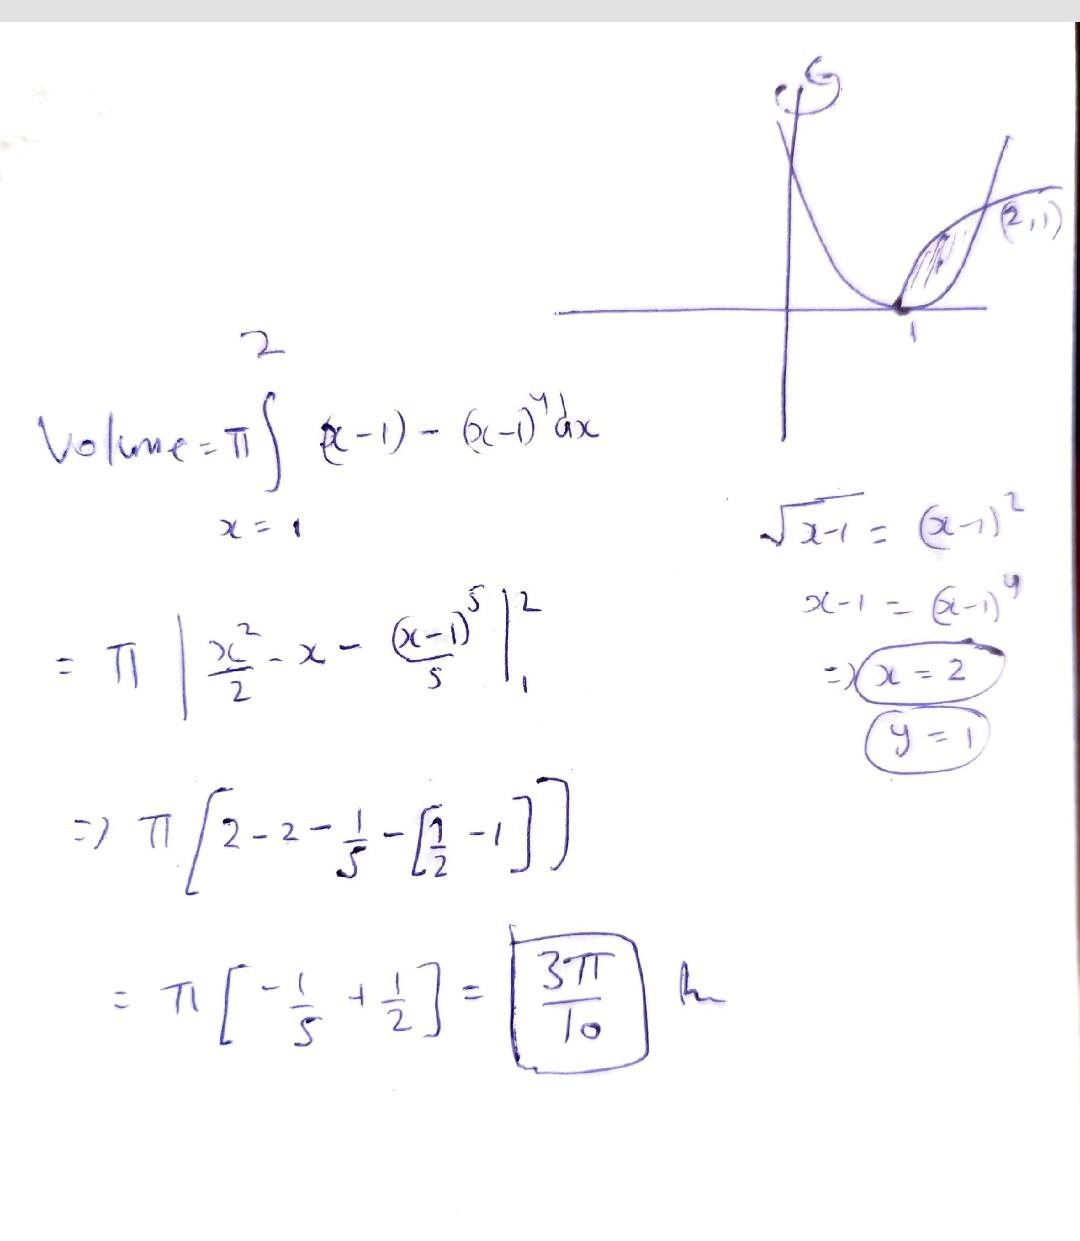 (2,1)
1
Volume = π ∫_{x=1}^{2} (x-1) - (x-1)^4 dx
√(x-1) = (x-1)^2
x-1 = (x-1)^4
=> x = 2
y = 1
= π | x^2/2 - x - (x-1)^5/5 |_1^2
=> π [2 - 2 - 1/5 - [1/2 - 1]]
= π [-1/5 + 1/2] = 3π/10